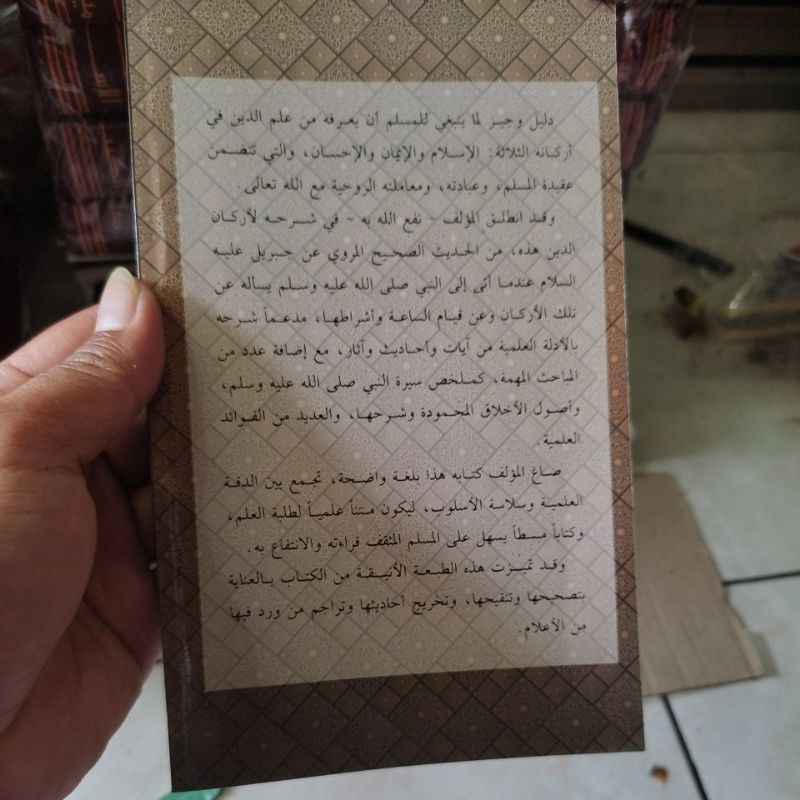 دليل وجيز لما ينبغي للمسلم أن يعرفه من علم الدين في
أركانه الثلاثة: الإسلام والإيمان والإحسان، والتي تتضمن
عقيدة المسلم، وعبادته، ومعاملته الروحية مع الله تعالى.
وقد انطلق المؤلف - نفع الله به - في شرحه لأركان
الدين هذه، من الحديث الصحيح المروي عن جبريل عليه
السلام عندما أتى إلى النبي صلى الله عليه وسلم يسأله عن
تلك الأركان وعن قيام الساعة وأشراطها، مدعماً شرحه
بالأدلة العلمية من آيات وأحاديث وآثار، مع إضافة عدد من
المباحث المهمة، كملخص سيرة النبي صلى الله عليه وسلم،
وأصول الأخلاق المحمودة وشرحها، والعديد من الفوائد
العلمية.
صاغ المؤلف كتابه هذا بلغة واضحة، تجمع بين الدقة
العلمية وسلاسة الأسلوب، ليكون متناً علمياً لطلبة العلم،
وكتاباً مبسطاً يسهل على المسلم المثقف قراءته والانتفاع به.
وقد تميزت هذه الطبعة الأنيقة من الكتاب بالعناية
بتصحيحها وتنقيحها، وتخريج أحاديثها وتراجم من ورد فيها
من الأعلام.